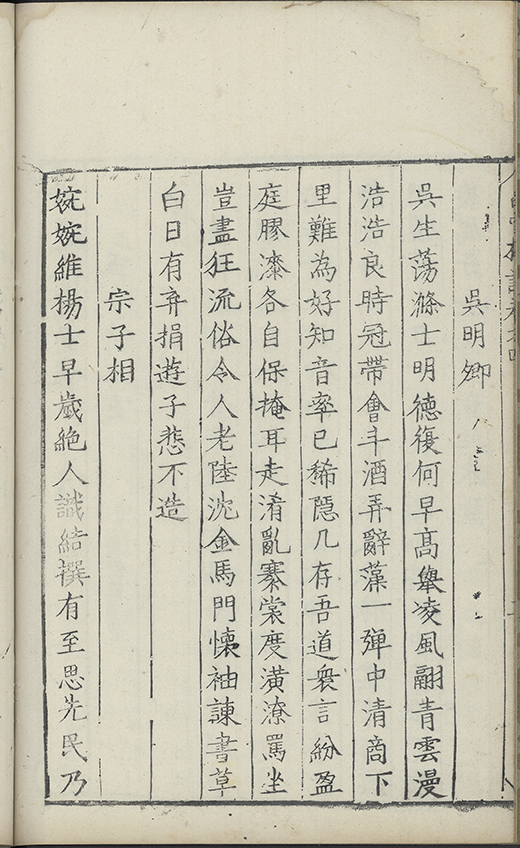 吳明卿
吳生蕩滌士明德復何早高舉凌風翮青雲漫
浩浩良時冠帶會斗酒弄辭藻一彈中清商下
里難為好知音率已稀隱几存吾道衆言紛盈
庭膠漆各自保掩耳走淆亂褰裳度潢潦罵坐
豈盡狂流俗令人老陸沈金馬門懷袖諫書草
白日有弃捐遊子悲不造
宗子相
婉婉維楊士早歲絕人識結撰有至思先民乃